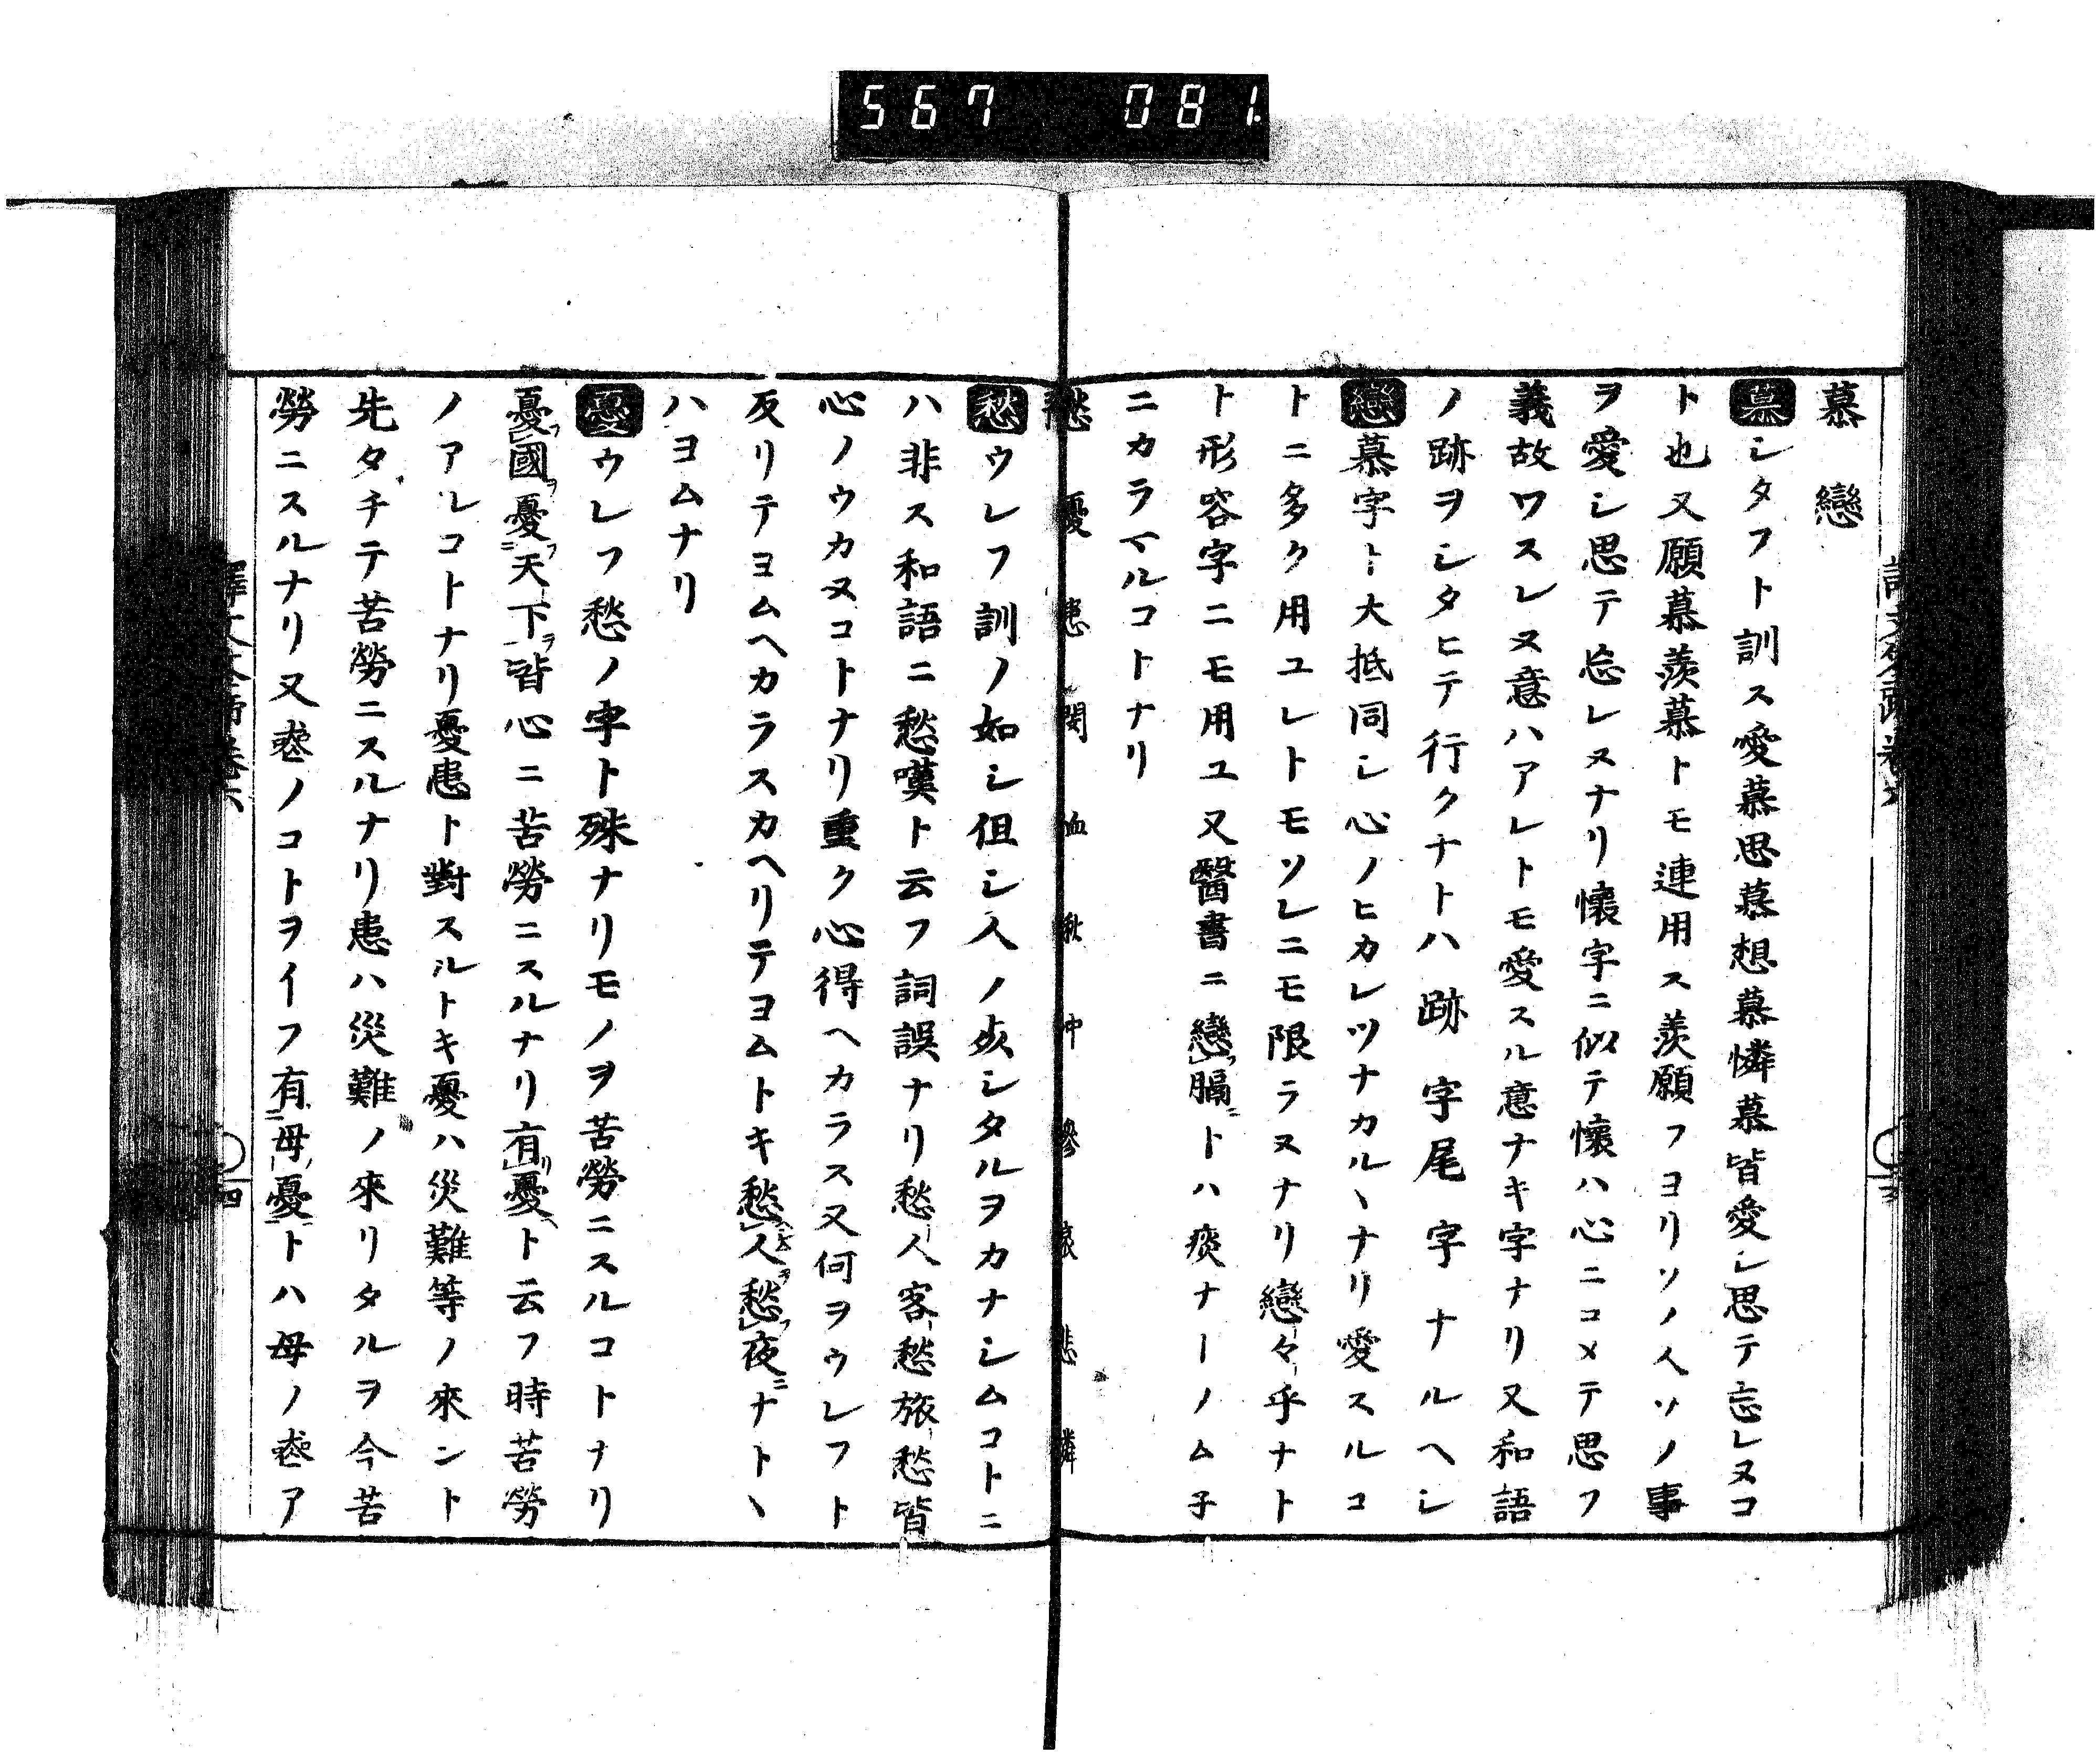 567 081.
慕 戀
慕シタフト訓ス愛慕思慕想慕憐慕皆愛シ思テ忘レヌコ
ト也又願慕羨慕トモ連用ス羨願フヨリソノ人ソノ事
ヲ愛シ思テ忘レヌナリ懷字ニ似テ懷ハ心ニコメテ思フ
義故ワスレヌ意ハアレトモ愛スル意ナキ字ナリ又和語
ノ跡ヲシタヒテ行クナトハ跡字尾字ナルヘシ
戀慕字ト大抵同シ心ノヒカレツナカルヽナリ愛スルコ
トニ多ク用ユレトモソレニモ限ラヌナリ戀々乎ナト
ト形容字ニモ用ユ又醫書ニ戀膈トハ痰ナーノム子
ニカラマルコトナリ
愁 憂 患 閔 恤 愀 忡 慘 哀 悲 憐
愁ウレフ訓ノ如シ但シ人ノ死シタルヲカナシムコトニ
ハ非ス和語ニ愁嘆ト云フ詞誤ナリ愁人客愁旅愁皆
心ノウカヌコトナリ重ク心得ヘカラス又何ヲウレフト
反リテヨムヘカラスカヘリテヨムトキ愁人愁夜ナトヽ
ハヨムナリ
憂ウレフ愁ノ字ト殊ナリモノヲ苦勞ニスルコトナリ
憂國憂天下皆心ニ苦勞ニスルナリ有憂ト云フ時苦勞
ノアルコトナリ憂患ト對スルトキ憂ハ災難等ノ來ント
先タチテ苦勞ニスルナリ患ハ災難ノ來リタルヲ今苦
勞ニスルナリ又喪ノコトヲイフ有母憂トハ母ノ喪ア
四